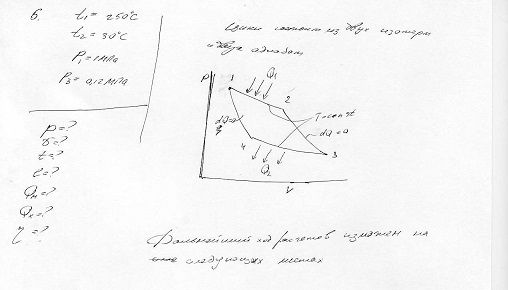 6.
t₁ = 250°C
t₂ = 30°C
P₁ = 1 МПа
P₃ = 0,12 МПа
p = ?
υ = ?
t = ?
l = ?
Qп = ?
η = ?
Цикл состоит из двух изотерм
и двух адиабат
P
1
Q₁
2
T=const
dQ=0
dQ=0
4
3
Q₂
V
Дальнейший ход расчетов изложен на
следующих листах